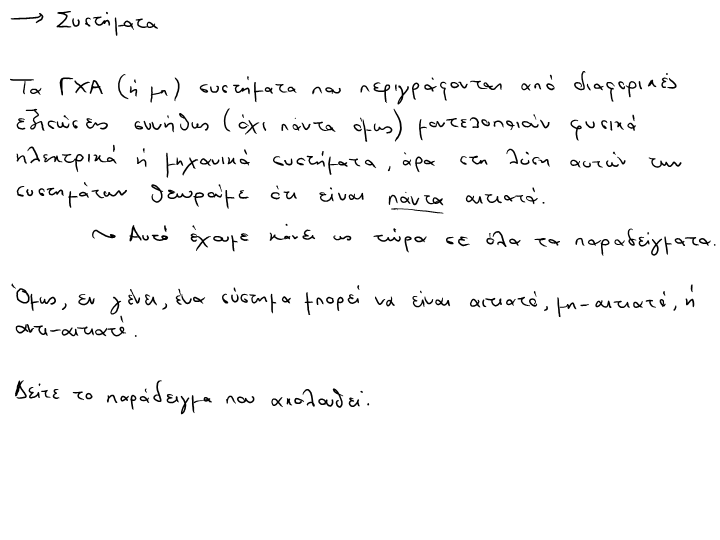 → Συστήματα
Τα ΓΧΑ (ή μη) συστήματα που περιγράφονται από διαφορικές
εξισώσεις συνήθως (όχι πάντα όμως) μοντελοποιούν φυσικά
ηλεκτρικά ή μηχανικά συστήματα, άρα στη λύση αυτών των
συστημάτων θεωρούμε ότι είναι πάντα αιτιατά.
~ Αυτό έχουμε κάνει ως τώρα σε όλα τα παραδείγματα.
Όμως, εν γένει, ένα σύστημα μπορεί να είναι αιτιατό, μη-αιτιατό, ή
αντι-αιτιατό.
Δείτε το παράδειγμα που ακολουθεί.